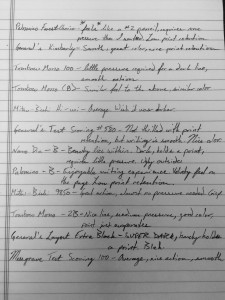 Palomino ForestChoice - "feels" like a #2 pencil, requires some
pressure than I wanted. Low point retention.
General's Kimberly - Smooth, great reference point retention.
Tombow Mono 100 - Little pressure required for a dark line,
smooth action
Tombow Mono (B) - Similar feel to the above, similar color
Mitsu. Bishi Hi-uni - Average. Wish it was darker
General's Test Scoring #580 - Not thrilled with point
retention, but writing is smooth. Nice color
Nano Dia - B - Beauty lies within. Dark, holds a point,
regular little pressure. Ugly outsides
Palomino - B - Enjoyable writing experience. Velvety feel on
the page. Low point retention.
Mitsu. Bishi 9850 - Good action, almost no pressure needed. Crisp.
Tombow Mono - 2B - Nice line, medium pressure, good color,
point just evaporates
General's Layout Extra Black - SUPER DARK, barely holds
a point. Bleh
Musgrave Test Scoring 100 - Average, nice action, smooth